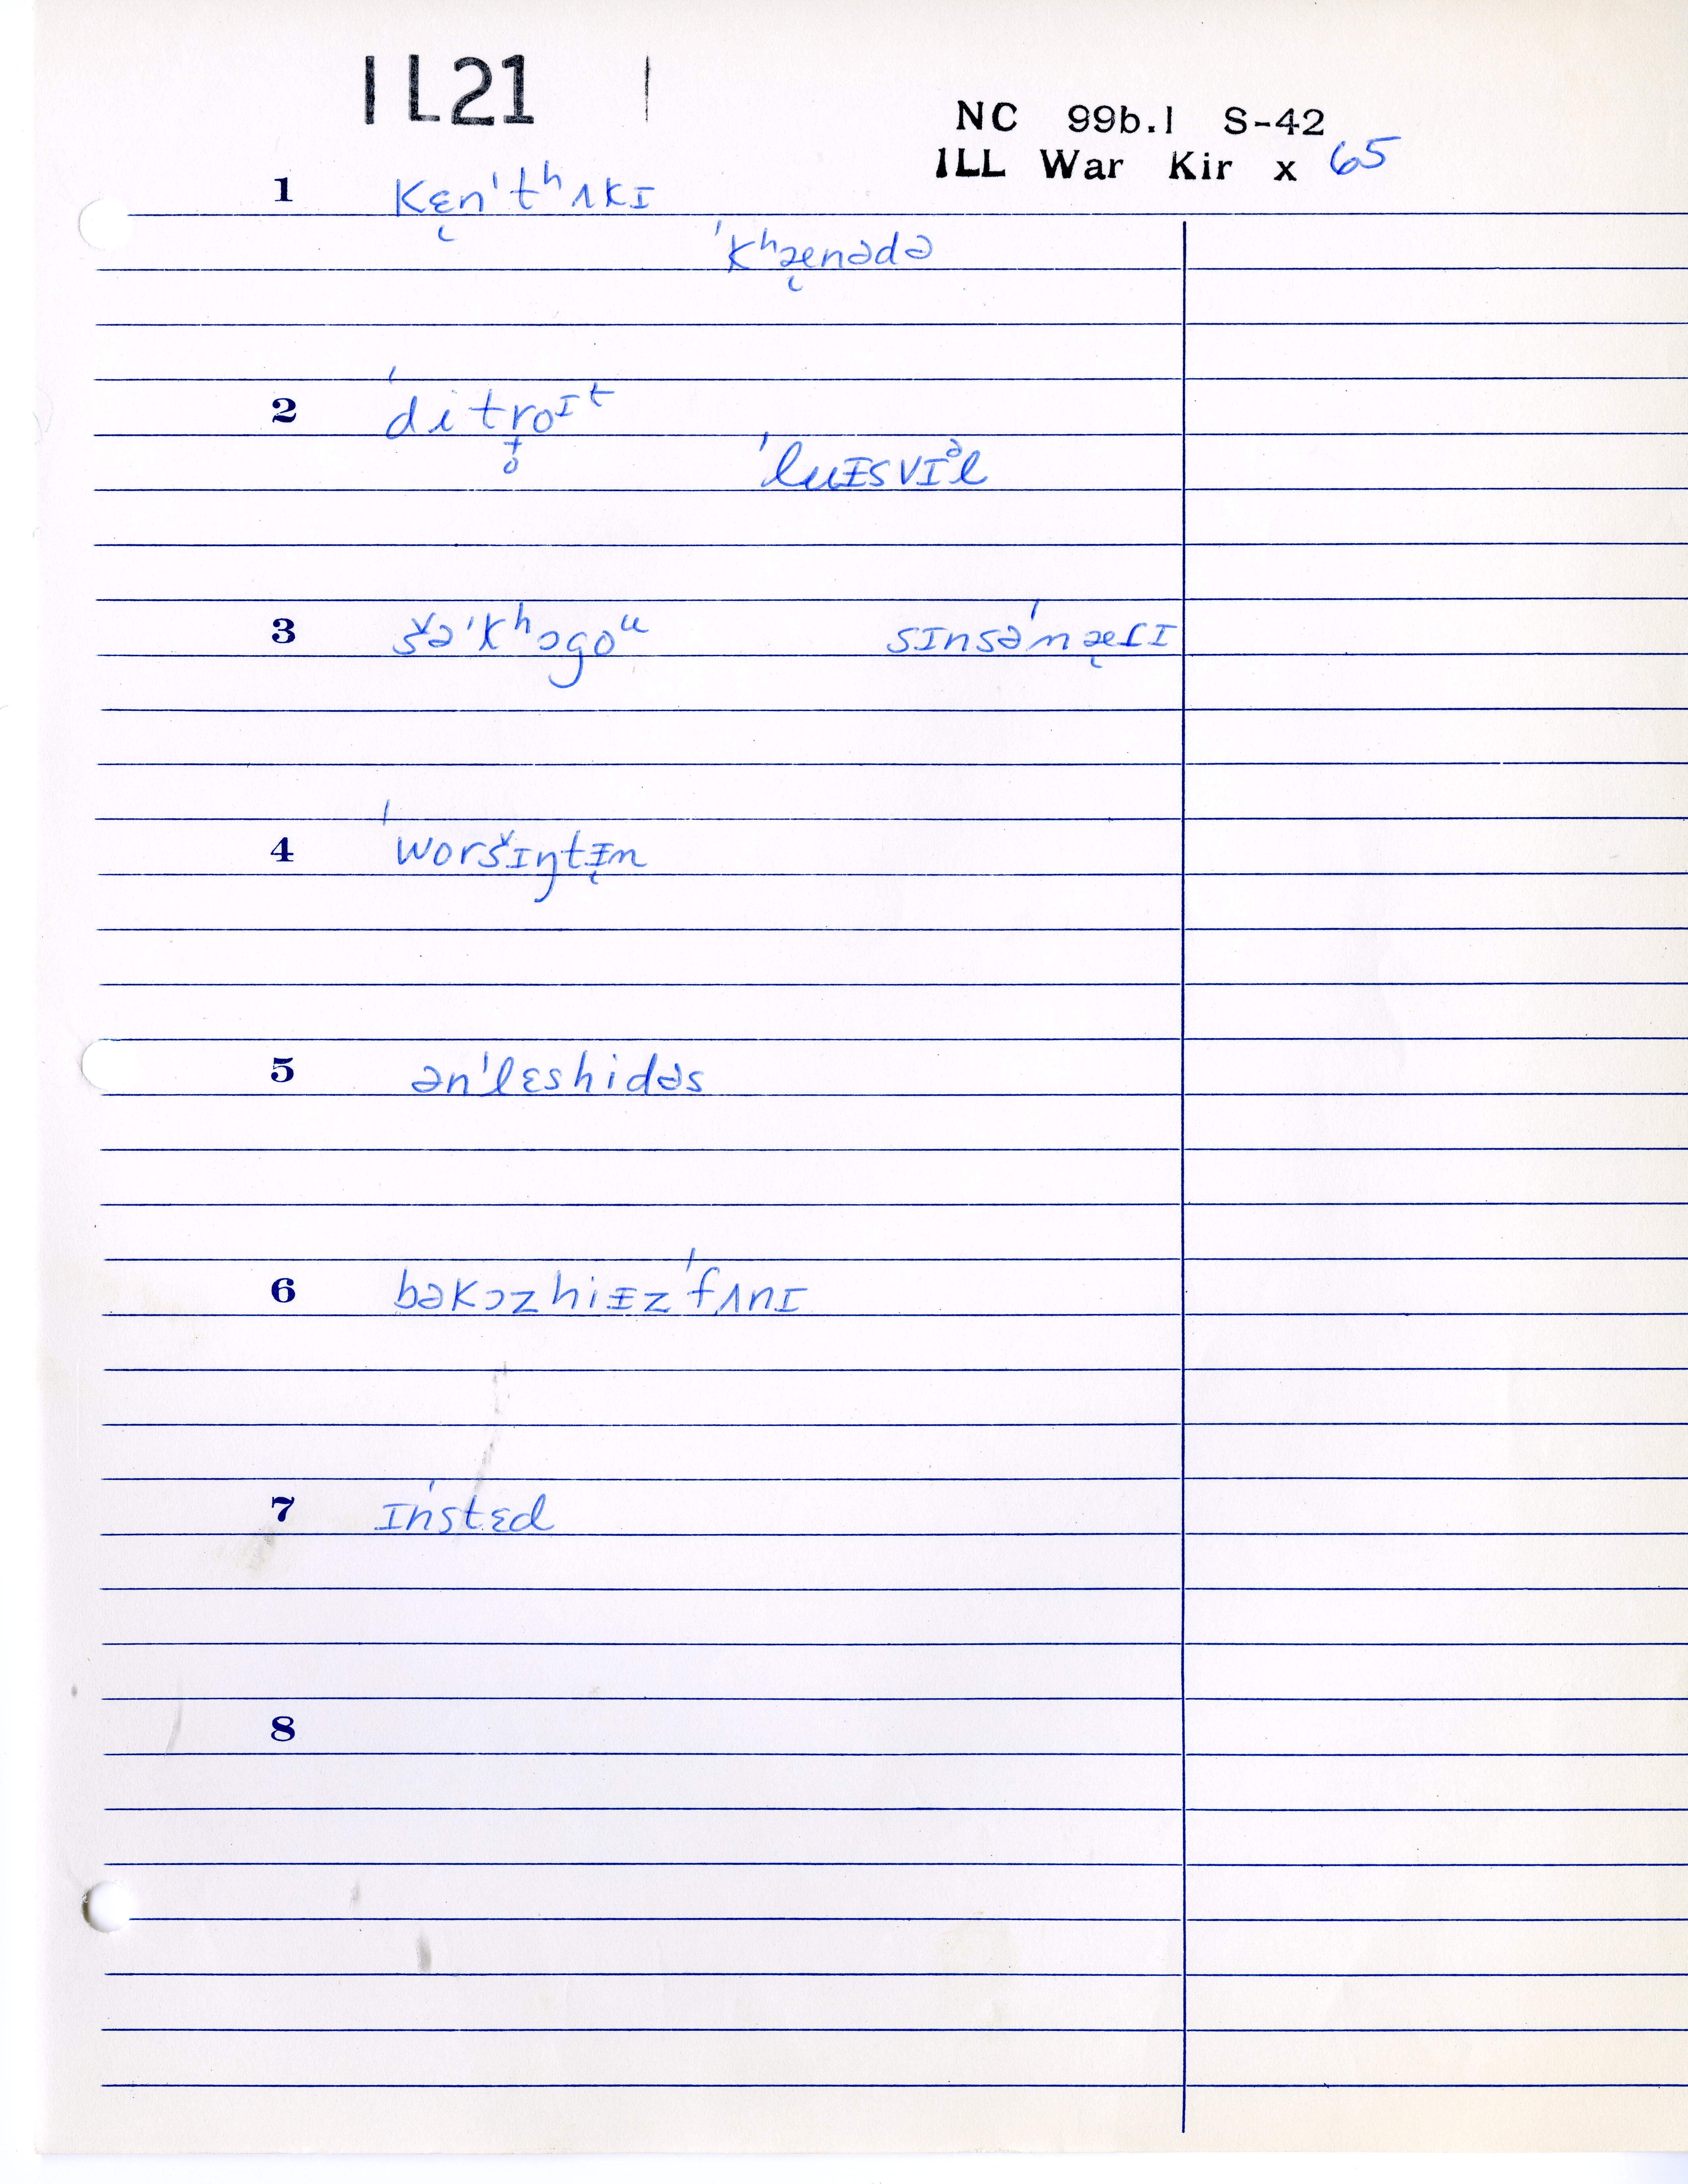 IL21 |
NC 99b.1 S-42
ILL War Kir x 65
1 Kɛ̨nˈtʰʌkɪ
ˈkʰæ̨nədə
2 ˈditroɪᵗ
ˈluɪsvɪᵊl
3 šəˈkʰɔgoᵘ sɪnsəˈnæ̨ɾɪ
4 ˈworšɪŋtɨ̨n
5 ənˈlɛshidəs
6 bəkɔzhiɨzˈfʌnɪ
7 ɪnˈstɛd
8